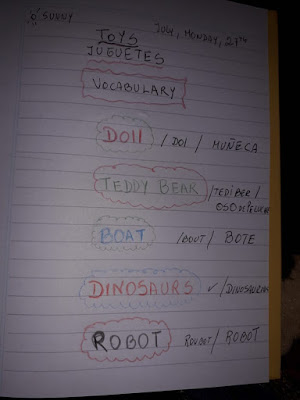 SUNNY
JULY, MONDAY, 27TH
TOYS
JUGUETES
VOCABULARY
DOll / DOl / MUÑECA
TEDDY BEAR /TEDIBER /
OSO DE PELUCHE
BOAT /BOUT/ BOTE
DINOSAURS /DINOSAURIOS
ROBOT ROUBOT/ ROBOT